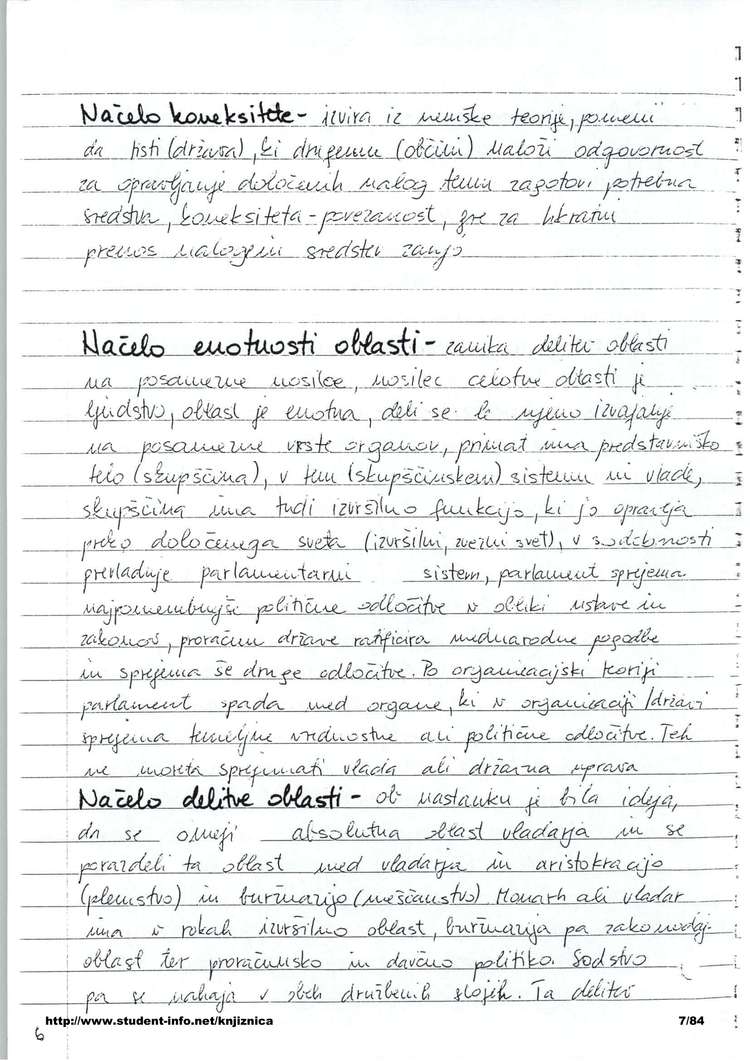 Načelo koneksitete - izvira iz nemške teorije, pomeni
da tisti (država), ki drugemu (občini) naloži odgovornost
za opravljanje določenih nalog temu zagotovi potrebna
sredstva, koneksiteta - povezanost, gre za hkratni
prenos nalog in sredstev zanjo
Načelo enotnosti oblasti - zanika delitev oblasti
na posamezne nosilce, nosilec celotne oblasti je
ljudstvo, oblast je enotna, deli se le njeno izvajanje
na posamezne vrste organov, primat ima predstavniško
telo (skupščina), v tem (skupščinskem) sistemu ni vlade,
skupščina ima tudi izvršilno funkcijo, ki jo opravlja
preko določenega sveta (izvršilni, zvezni svet), v sodobnosti
prevladuje parlamentarni sistem, parlament sprejema
najpomembnejše politične odločitve v obliki ustave in
zakonov, proračun države ratificira mednarodne pogodbe
in sprejema še druge odločitve. Po organizacijski teoriji
parlament spada med organe, ki v organizaciji /državi
sprejema temeljne vrednostne ali politične odločitve. Teh
ne moreta sprejemati vlada ali državna uprava
Načelo delitve oblasti - ob nastanku je bila ideja,
da se omeji absolutna oblast vladarja in se
porazdeli ta oblast med vladarja in aristokracijo
(plemstvo) in buržuazijo (meščanstvo). Monarh ali vladar
ima v rokah izvršilno oblast, buržuazija pa zakonodaj.
oblast ter proračunsko in davčno politiko. Sodstvo
pa se nahaja v obeh družbenih slojih. Ta delitev
http://www.student-info.net/knjiznica
7/84
6